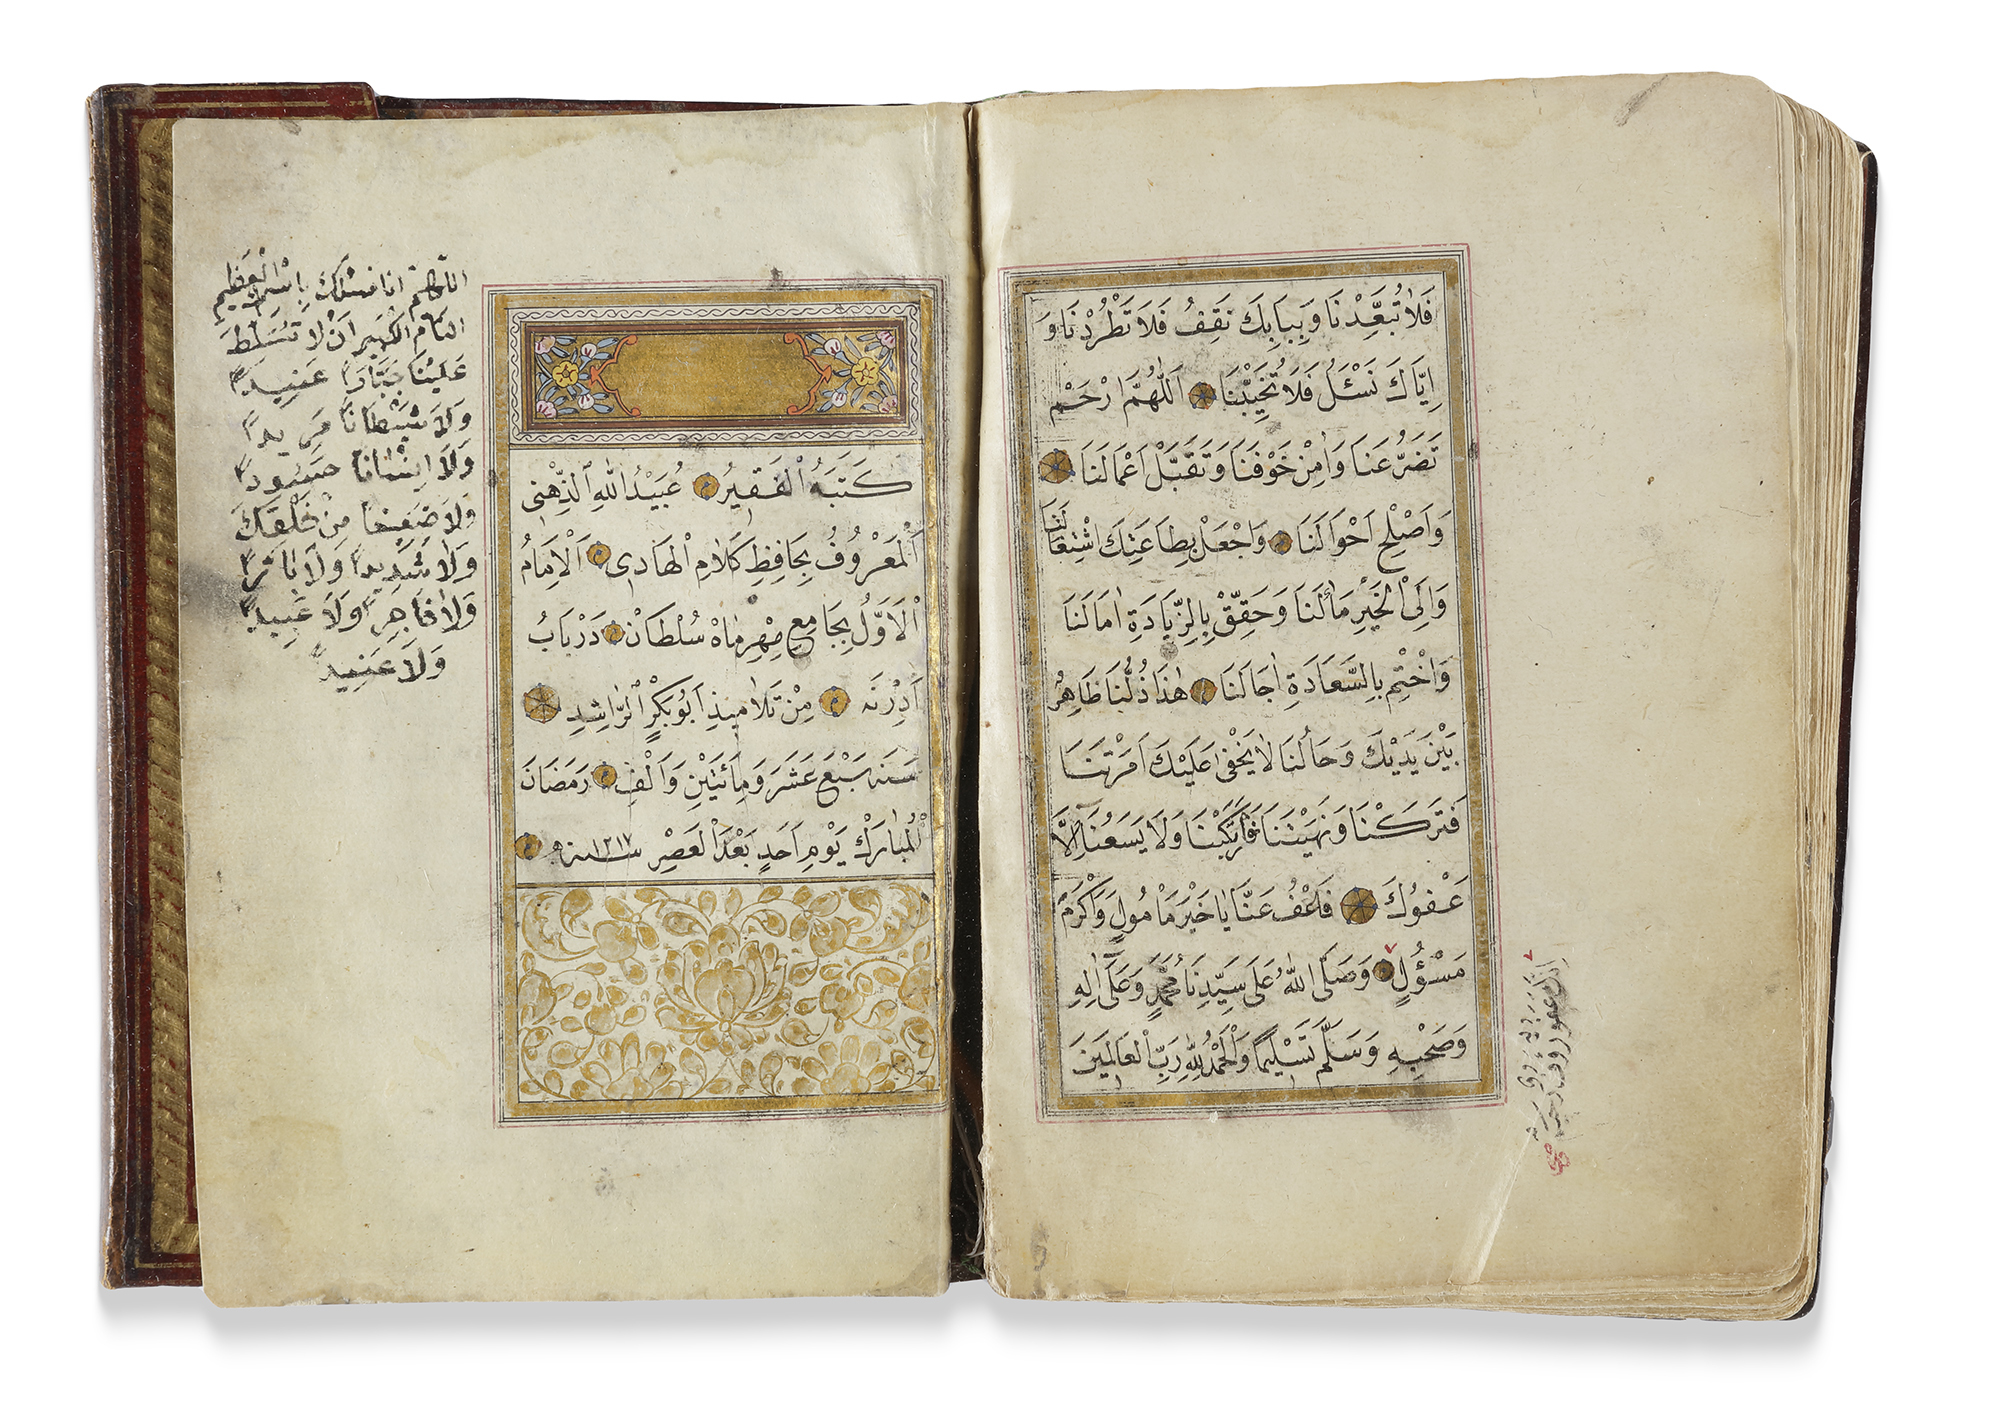 فَلَا تُبَعِّدْنَا وَبِبَابِكَ نَقِفُ فَلَا تَطْرُدْنَا وَ
اِيَّاكَ نَسْئَلُ فَلَا تُخَيِّبْنَا اَللّٰهُمَّ ارْحَمْ
تَضَرُّعَنَا وَاٰمِنْ خَوْفَنَا وَتَقَبَّلْ اَعْمَالَنَا
وَاَصْلِحْ اَحْوَالَنَا وَاجْعَلْ بِطَاعَتِكَ اشْتِغَالَنَا
وَاِلَى الْخَيْرِ مَاٰلَنَا وَحَقِّقْ بِالزِّيَادَةِ اٰمَالَنَا
وَاخْتِمْ بِالسَّعَادَةِ اٰجَالَنَا هٰذَا ذُلُّنَا ظَاهِرٌ
بَيْنَ يَدَيْكَ وَحَالُنَا لَا يَخْفٰى عَلَيْكَ اَمَرْتَنَا
فَتَرَكْنَا وَنَهَيْتَنَا فَارْتَكَبْنَا وَلَا يَسَعُنَا اِلَّا
عَفْوُكَ فَاعْفُ عَنَّا يَا خَيْرَ مَاْمُولٍ وَاَكْرَمَ
مَسْؤُلٍ وَصَلَّى اللّٰهُ عَلٰى سَيِّدِنَا مُحَمَّدٍ وَعَلٰى اٰلِهِ
وَصَحْبِهِ وَسَلَّمَ تَسْلِيمًا وَالْحَمْدُ لِلّٰهِ رَبِّ الْعَالَمِينَ
كَتَبَهُ الْفَقِيرُ عُبَيْدُ اللّٰهِ الذِّهْنِى
اَلْمَعْرُوفُ بِحَافِظِ كَلَامِ الْهَادِى اَلْاِمَامُ
الْاَوَّلُ بِجَامِعِ مِهْرِمَاهْ سُلْطَانْ دَرْ بَابُ
اَدِرْنَه مِنْ تَلَامِيذِ اَبُو بَكْرٍ الرَّاشِدِ
سَنَه سَبْعَ عَشَرَ وَمِائَتَيْنِ وَاَلْفِ رَمَضَانَ
الْمُبَارَكْ يَوْمِ اَحَدٍ بَعْدَ الْعَصْرِ سنه ١٢١٧
اللّٰهُمَّ انا نسئلك بِاسْمِكَ الْعَظِيمِ
التَّام الكَبِير اَنْ لا تُسَلِّطَ
عَلَيْنَا جَبَّارًا عَنِيدًا
وَلَا شَيْطَانًا مَرِيدًا
وَلَا اِنْسَانًا حَسُودًا
وَلَا ضَعِيفًا مِنْ خَلْقِكَ
وَلَا شَدِيدًا وَلَا بَارًّا
وَلَا فَاجِرًا وَلَا عَبِيدًا
وَلَا عَنِيدًا